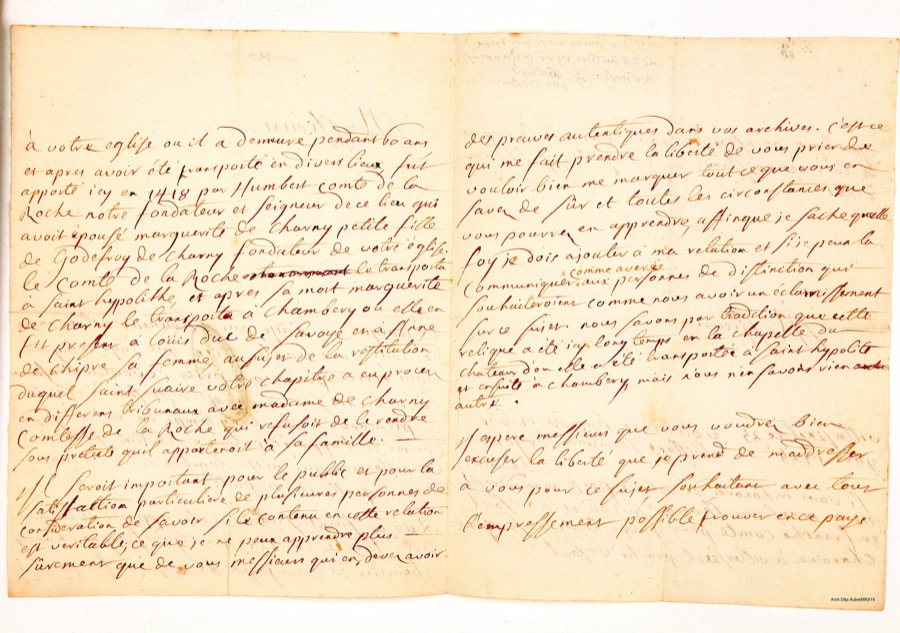 à votre eglise ou il a demeuré pendant 60 ans
et apres avoir été transporté en divers lieux fut
apporté icy en 1418 par Humbert Comte de la
Roche notre fondateur et seigneur de ce lieu qui
avoit epousé marguerite de Charny petite fille
de Godefroy de Charny fondateur de votre église.
le Comte de la Roche le transporta
à saint hyppolithe, et apres sa mort marguerite
de Charny le transporta à Chambery ou elle en
fit present à Loüis duc de savoye et à Anne
de Chipre sa femme, au sujet de la restitution
duquel saint suaire votre chapitre a eu procez
en differens tribunaux avec madame de Charny
Comtesse de la Roche qui refusoit de le rendre
sous pretexte qu'il appartenoit à sa famille.
Il seroit important pour le public et pour la
satisfaction particuliere de plusieures personnes de
consideration de savoir si le contenu en cette relation
est veritable, ce que je ne peux apprendre plus
sûrement que de vous messieurs qui en devez avoir
des preuves autentiques dans vos archives. C'est ce
qui me fait prendre la liberté de vous prier de
vouloir bien me marquer tout ce que vous en
savez de sûr et toutes les circonstances que
vous pourrez en apprendre, affinque je sache quelle
foy je dois ajouter à ma relation et si je peux la
communiquer comme averée aux personnes de distinction qui
souhaiteroient comme nous avoir un éclaircissement
sur ce sujet. nous savons par tradition que cette
relique a été icy long temps en la chapelle du
chateau, d'ou elle a été transportée à saint hypolite
et ensuite à chambery, mais nous n'en savons rien
autre.
J'espere messieurs que vous voudrez bien
excuser la liberté que je prend de m'addresser
à vous pour ce sujet souhaitant avec tout
l'empressement possible trouver en ce pays
Arch.Dép.Aube/MN/19